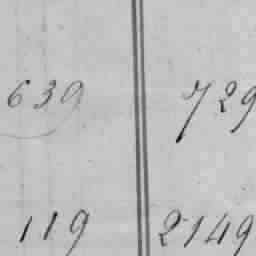 639 729
119 2149